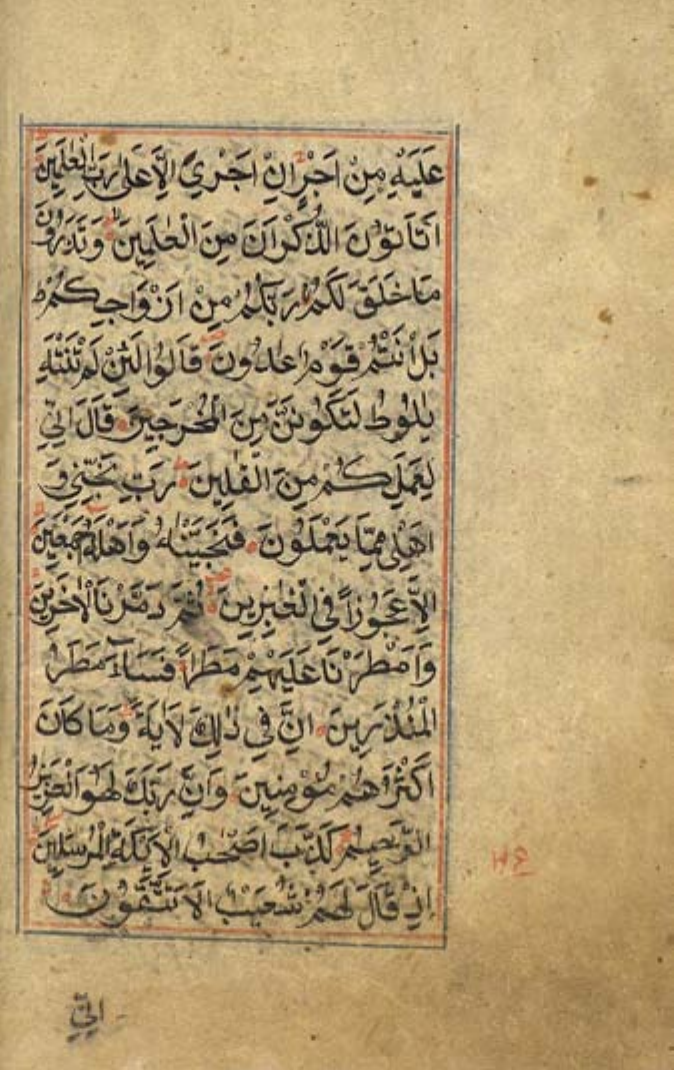 عَلَيْهِ مِنْ اَجْرٍ اِنْ اَجْرِيَ اِلَّا عَلٰى رَبِّ الْعٰلَمِيْنَ
اَتَاْتُوْنَ الذُّكْرَانَ مِنَ الْعٰلَمِيْنَ وَتَذَرُوْنَ
مَا خَلَقَ لَكُمْ رَبُّكُمْ مِنْ اَزْوَاجِكُمْ ط
بَلْ اَنْتُمْ قَوْمٌ عٰدُوْنَ قَالُوْا لَئِنْ لَمْ تَنْتَهِ
يٰلُوْطُ لَتَكُوْنَنَّ مِنَ الْمُخْرَجِيْنَ قَالَ اِنِّيْ
لِعَمَلِكُمْ مِنَ الْقٰلِيْنَ رَبِّ نَجِّنِيْ وَ
اَهْلِيْ مِمَّا يَعْمَلُوْنَ فَنَجَّيْنٰهُ وَاَهْلَهٗ اَجْمَعِيْنَ
اِلَّا عَجُوْزًا فِي الْغٰبِرِيْنَ ثُمَّ دَمَّرْنَا الْاٰخَرِيْنَ
وَاَمْطَرْنَا عَلَيْهِمْ مَطَرًا فَسَآءَ مَطَرُ
الْمُنْذَرِيْنَ اِنَّ فِيْ ذٰلِكَ لَاٰيَةً وَمَا كَانَ
اَكْثَرُهُمْ مُؤْمِنِيْنَ وَاِنَّ رَبَّكَ لَهُوَ الْعَزِيْزُ
الرَّحِيْمُ كَذَّبَ اَصْحٰبُ الْاَيْكَةِ الْمُرْسَلِيْنَ
اِذْ قَالَ لَهُمْ شُعَيْبٌ اَلَا تَتَّقُوْنَ
اِنِّيْ